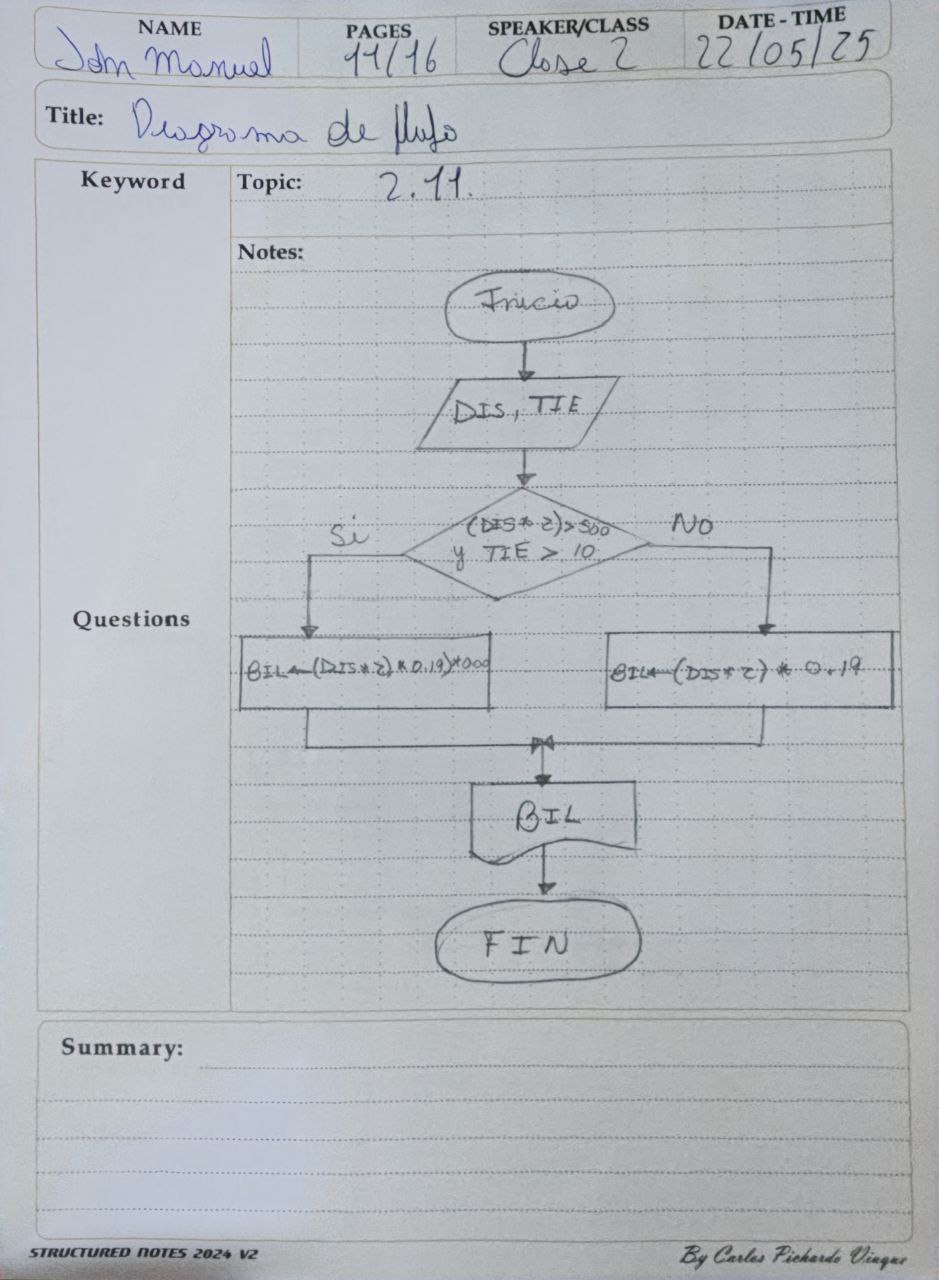 NAME PAGES SPEAKER/CLASS DATE - TIME
John Manuel 11/16 Clase 2 22/05/25
Title: Diagrama de flujo
Keyword
Topic: 2.11.
Notes:
Inicio
DIS, TIE
Si (DIS * 2) > 500 No
y TIE > 10
Questions
BIL ← (DIS * 2) * 0.19) * 000 BIL ← (DIS * 2) * 0.19
BIL
FIN
Summary:
STRUCTURED NOTES 2024 V2 By Carlos Pichardo Viuque